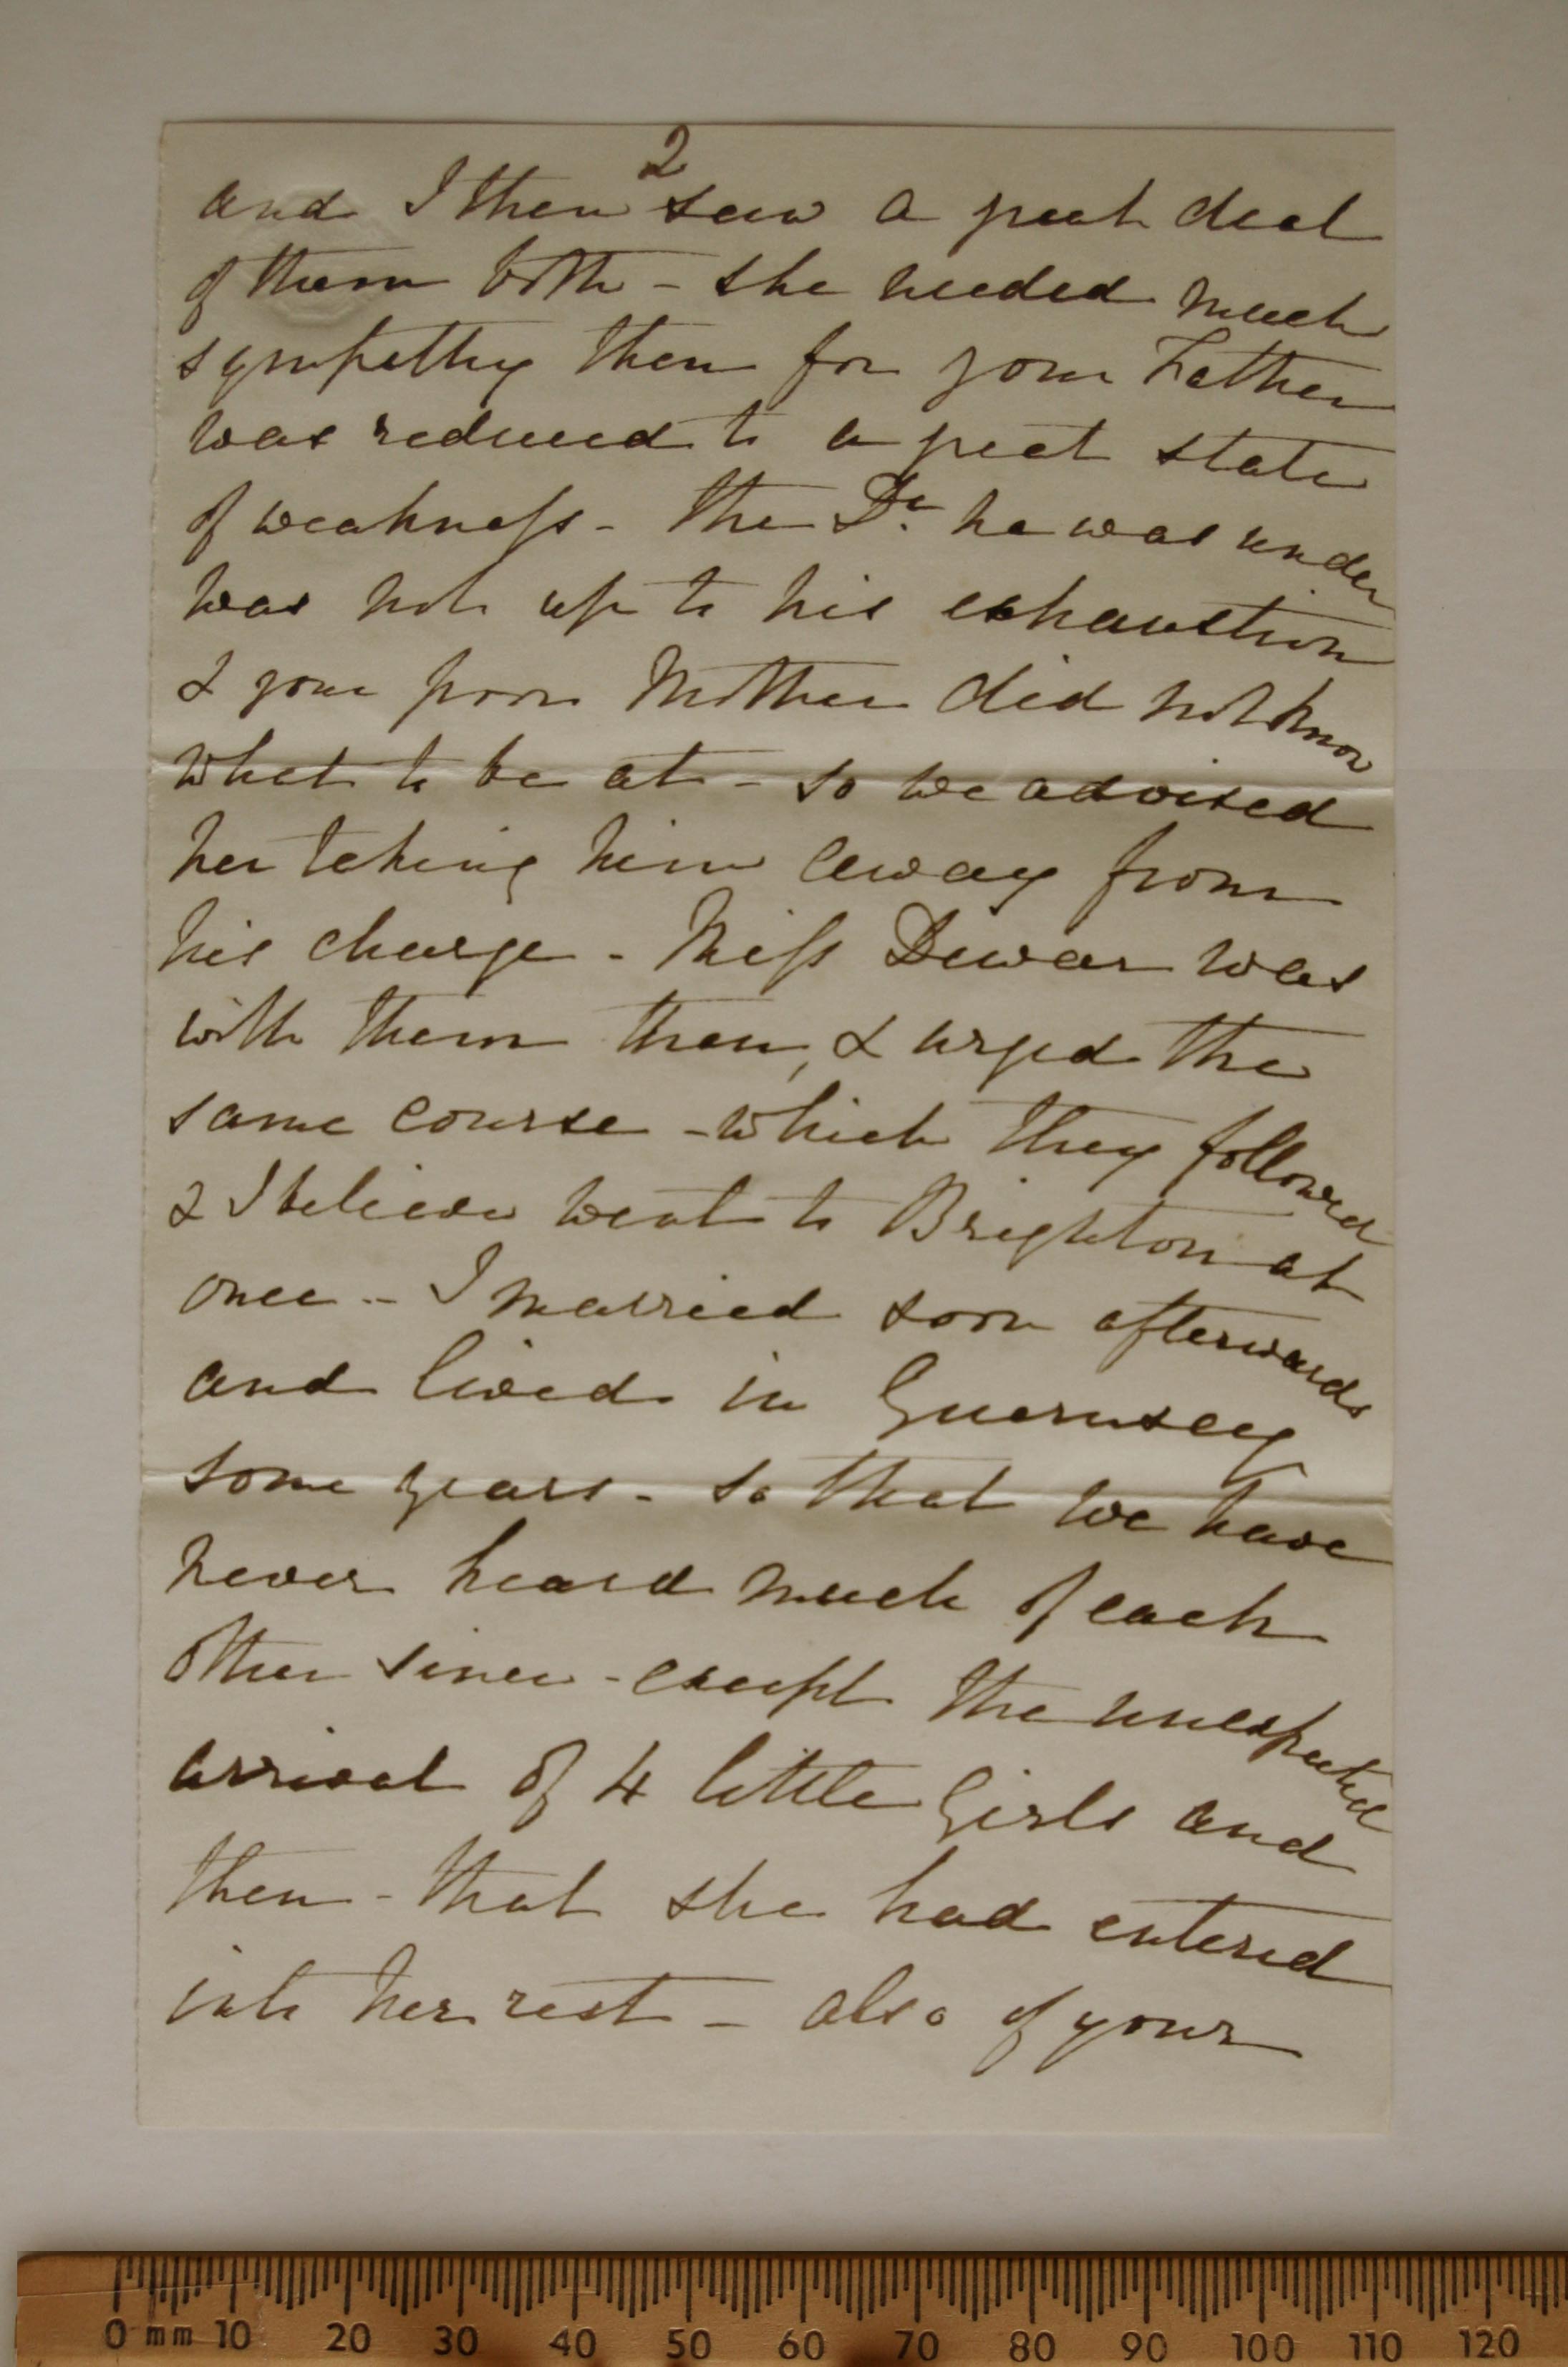 2
and I then saw a great deal
of them both - she needed much
sympathy then for your Father
was reduced to a great state
of weakness - the Dr. he was under
was not up to his exhaustion
& your poor Mother did not know
what to be at - so we advised
her taking him away from
his charge - Miss Dewar was
with them then, & urged the
same course - which they followed
& I believe went to Brighton at
once - I married soon afterwards
and lived in Guernsey
some years - so that we have
never heard much of each
other since - except the unexpected
arrival of 4 little Girls and
then - that she had entered
into her rest - also of your
0 mm 10 20 30 40 50 60 70 80 90 100 110 120